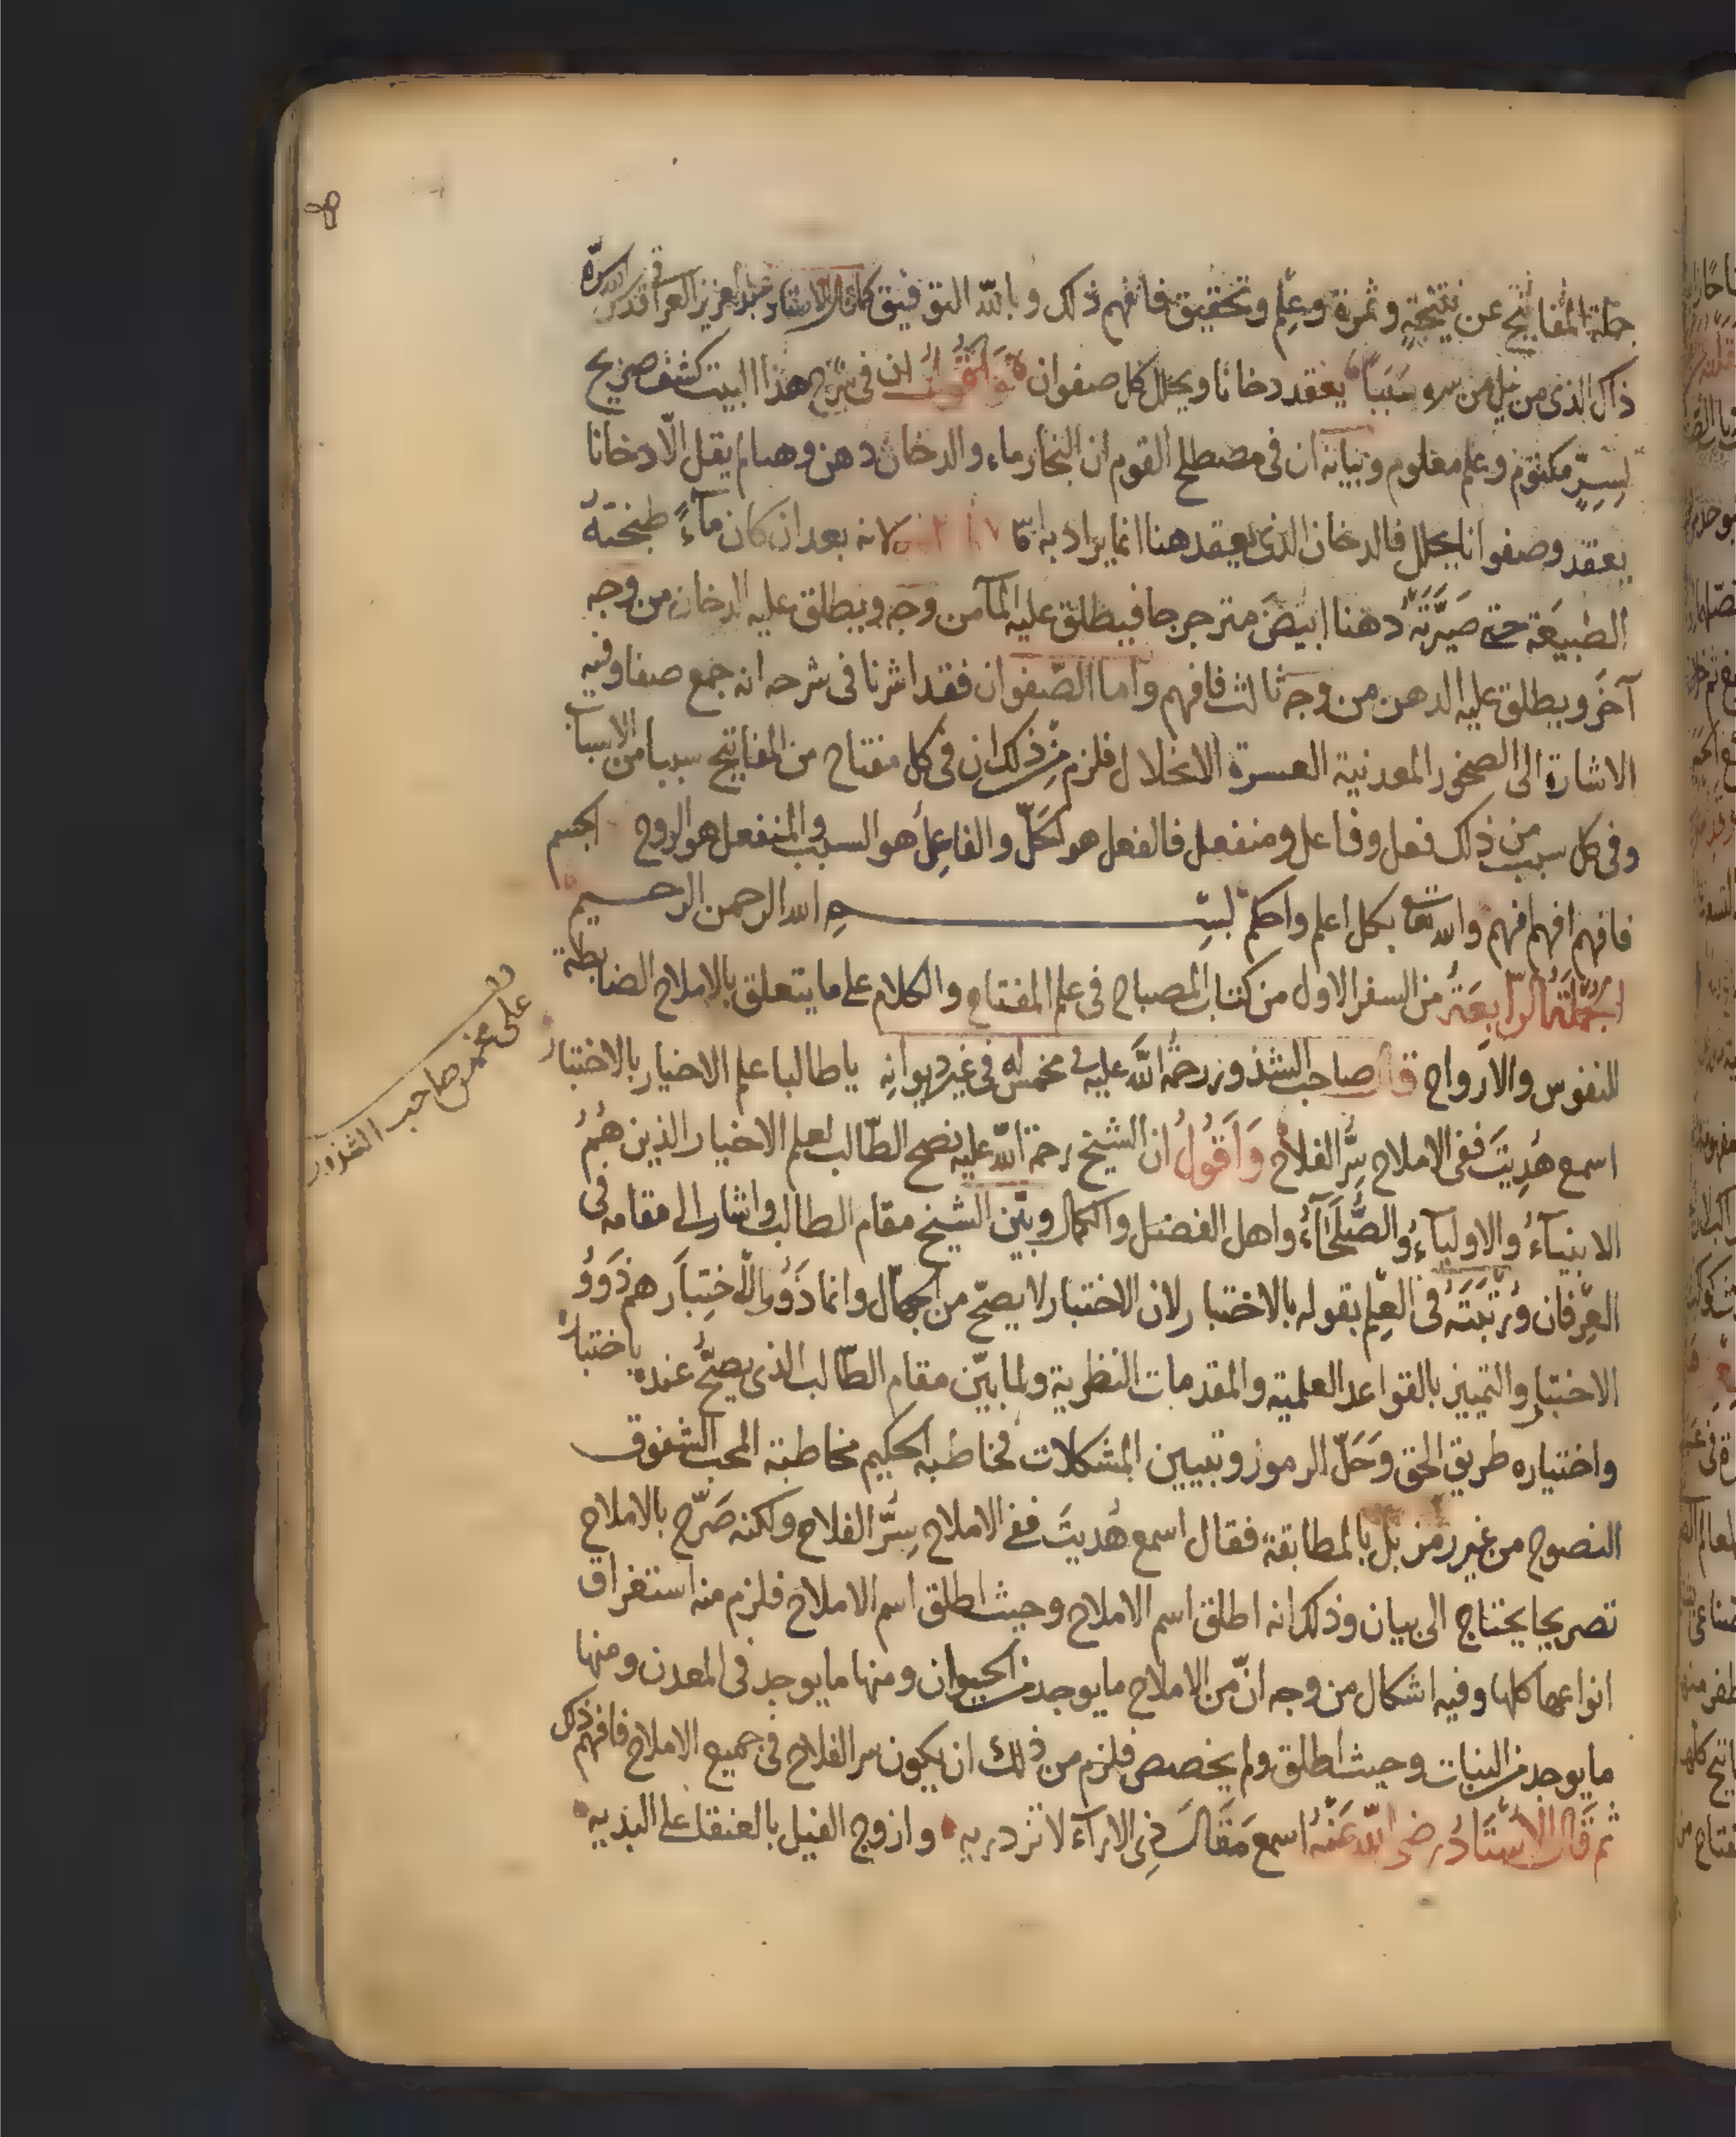 جملة المفاتيح عن نتيجةٍ وثمرة وعلم وتحقيق فافهم ذلك وبالله التوفيق كما قال الاستاد عبد العزيز العراقى قدس الله سره
ذاك الذى من نيل من سببا يعقد دخانا ويحلل كل صفوان وَاَقُولُ ان فى شرح هذا البيت كشف صريح
لسِرّ مكتوم وعلم معلوم وبيانه ان فى مصطلح القوم ان البخار ماء والدخان دهن وهنا لم يقل الّا دخانا
يعقد وصفوانا يحلل فالدخان الذى يعقد هنا انما يراد به لانه بعد ان كان مآءً طبختهُ
الطبيعَة حتى صَيَّرَتْهُ دهنا ابيَض مترجرجا فيطلق عليه المآ من وجه ويطلق عليه الدخان من وجه
آخَر ويطلق عليه الدهن من وجه ثالث فافهم واما الصّفوان فقد اشرنا فى شرحه انه جمع صفا وفيه
الاشارة الى الصخور المعدنية العسرة الانحلال فلزم من ذلك ان فى كل مفتاح من المفاتيح سببا من الاسباب
وفى كل سبب من ذلك فعل وفاعل ومنفعل فالفعل هو الحَلّ والفاعِلُ هو السبب والمنفعل هو الروح الجسم
فافهم افهم افهم والله تعا بكل اعلم واحكم بسم الله الرحمن الرحيم
الجُملَة الرّابِعَة من السفر الاول من كتاب المصباح فى علم المفتاح والكلام على ما يتعلق بالاملاح الضابطة
للنفوس والارواح قال صاحب الشذور رحمة الله عليه فى مخمس له فى غير ديوانه يا طالبا علم الاخيار بالاختبار
اسمع هُدِيتَ ففى الاملاح سِرُّ الفلاح وَاَقُولُ ان الشيخ رحمة الله عليه نصح الطّالب لعلم الاخيار الذين هُمُ
الانبيآءُ والاوليآءُ والصُّلَحَآءُ واهل الفضل والكمال وبيّن الشيخ مقام الطالب واشار الى مقامه فى
العِرفان ورُتبَتَهُ فى العِلم بقوله بالاختبار لان الاختبار لا يصحّ من الجهّال وانما ذَوُوا الاختِبَار هم ذَوُوُ
الاختبار والتمييز بالقواعد العلمية والمقدمات النظرية ولما بيّن مقام الطّالب الذى يصحُّ عنده باختباره
واختياره طريق الحق وَحَلّ الرموز وتبيين المشكلات فخاطبه الحكيم مخاطبة المحب الشفوق
النصوح من غير رمز بل بالمطابقة فقال اسمع هُديتَ ففى الاملاح سِرُّ الفلاح ولكنه صَرّح بالاملاح
تصريحا يحتاج الى بيان وذلك انه اطلق اسم الاملاح وحيث اطلق اسم الاملاح فلزم منه استغراق
انواعها كلها وفيه اشكال من وجه انّ من الاملاح ما يوجد من الحيوان ومنها ما يوجد فى المعدن ومنها
ما يوجد من النبات وحيث اطلق ولم يخصص فلزم من ذلك ان يكون سر الفلاح فى جميع الاملاح فافهم ذلك
ثم قَال الاُستَادُ رضى الله عَنْهُ اسمع مَقَالَ ذى الاراَء لا تزدريه وازوج الفيل بالعنقل على البديه
على مخمس صاحب الشذور